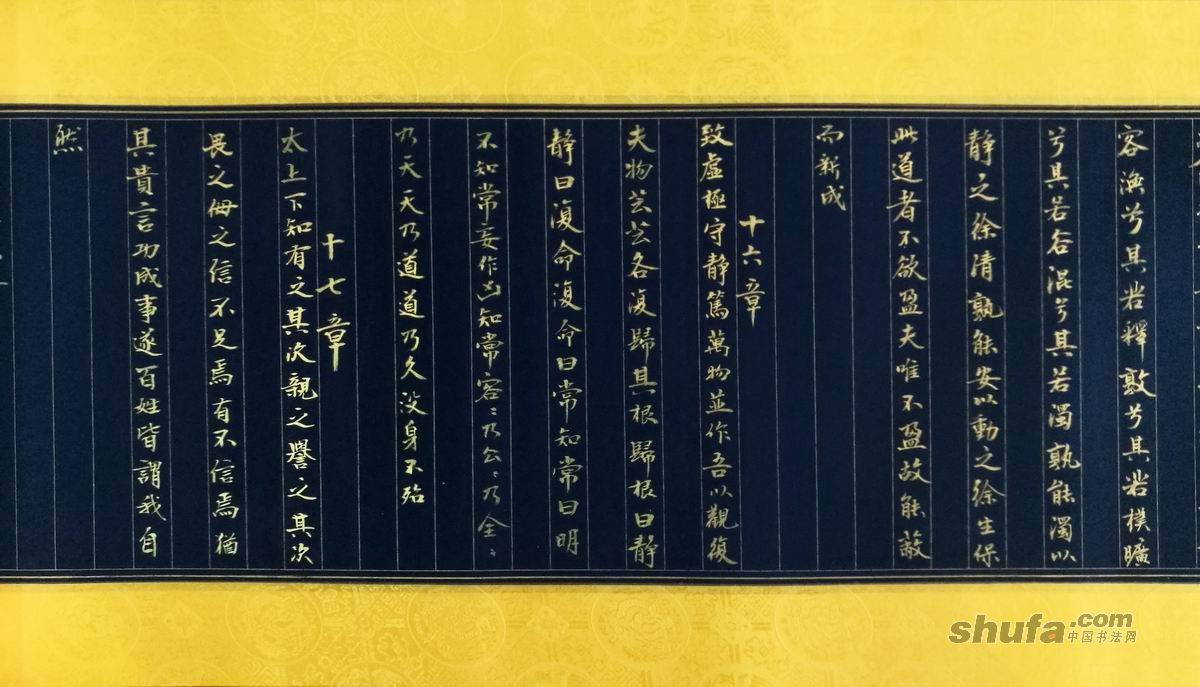 容渙兮其若釋敦兮其若樸曠
兮其若谷混兮其若濁孰能濁以
靜之徐清孰能安以動之徐生保
此道者不欲盈夫唯不盈故能蔽
而新成
十六章
致虛極守靜篤萬物並作吾以觀復
夫物芸芸各復歸其根歸根曰靜
靜曰復命復命曰常知常曰明
不知常妄作凶知常容〻乃公〻乃全〻
乃天天乃道道乃久沒身不殆
十七章
太上下知有之其次親之譽之其次
畏之侮之信不足焉有不信焉猶
其貴言功成事遂百姓皆謂我自
然
shufa.com
中国书法网